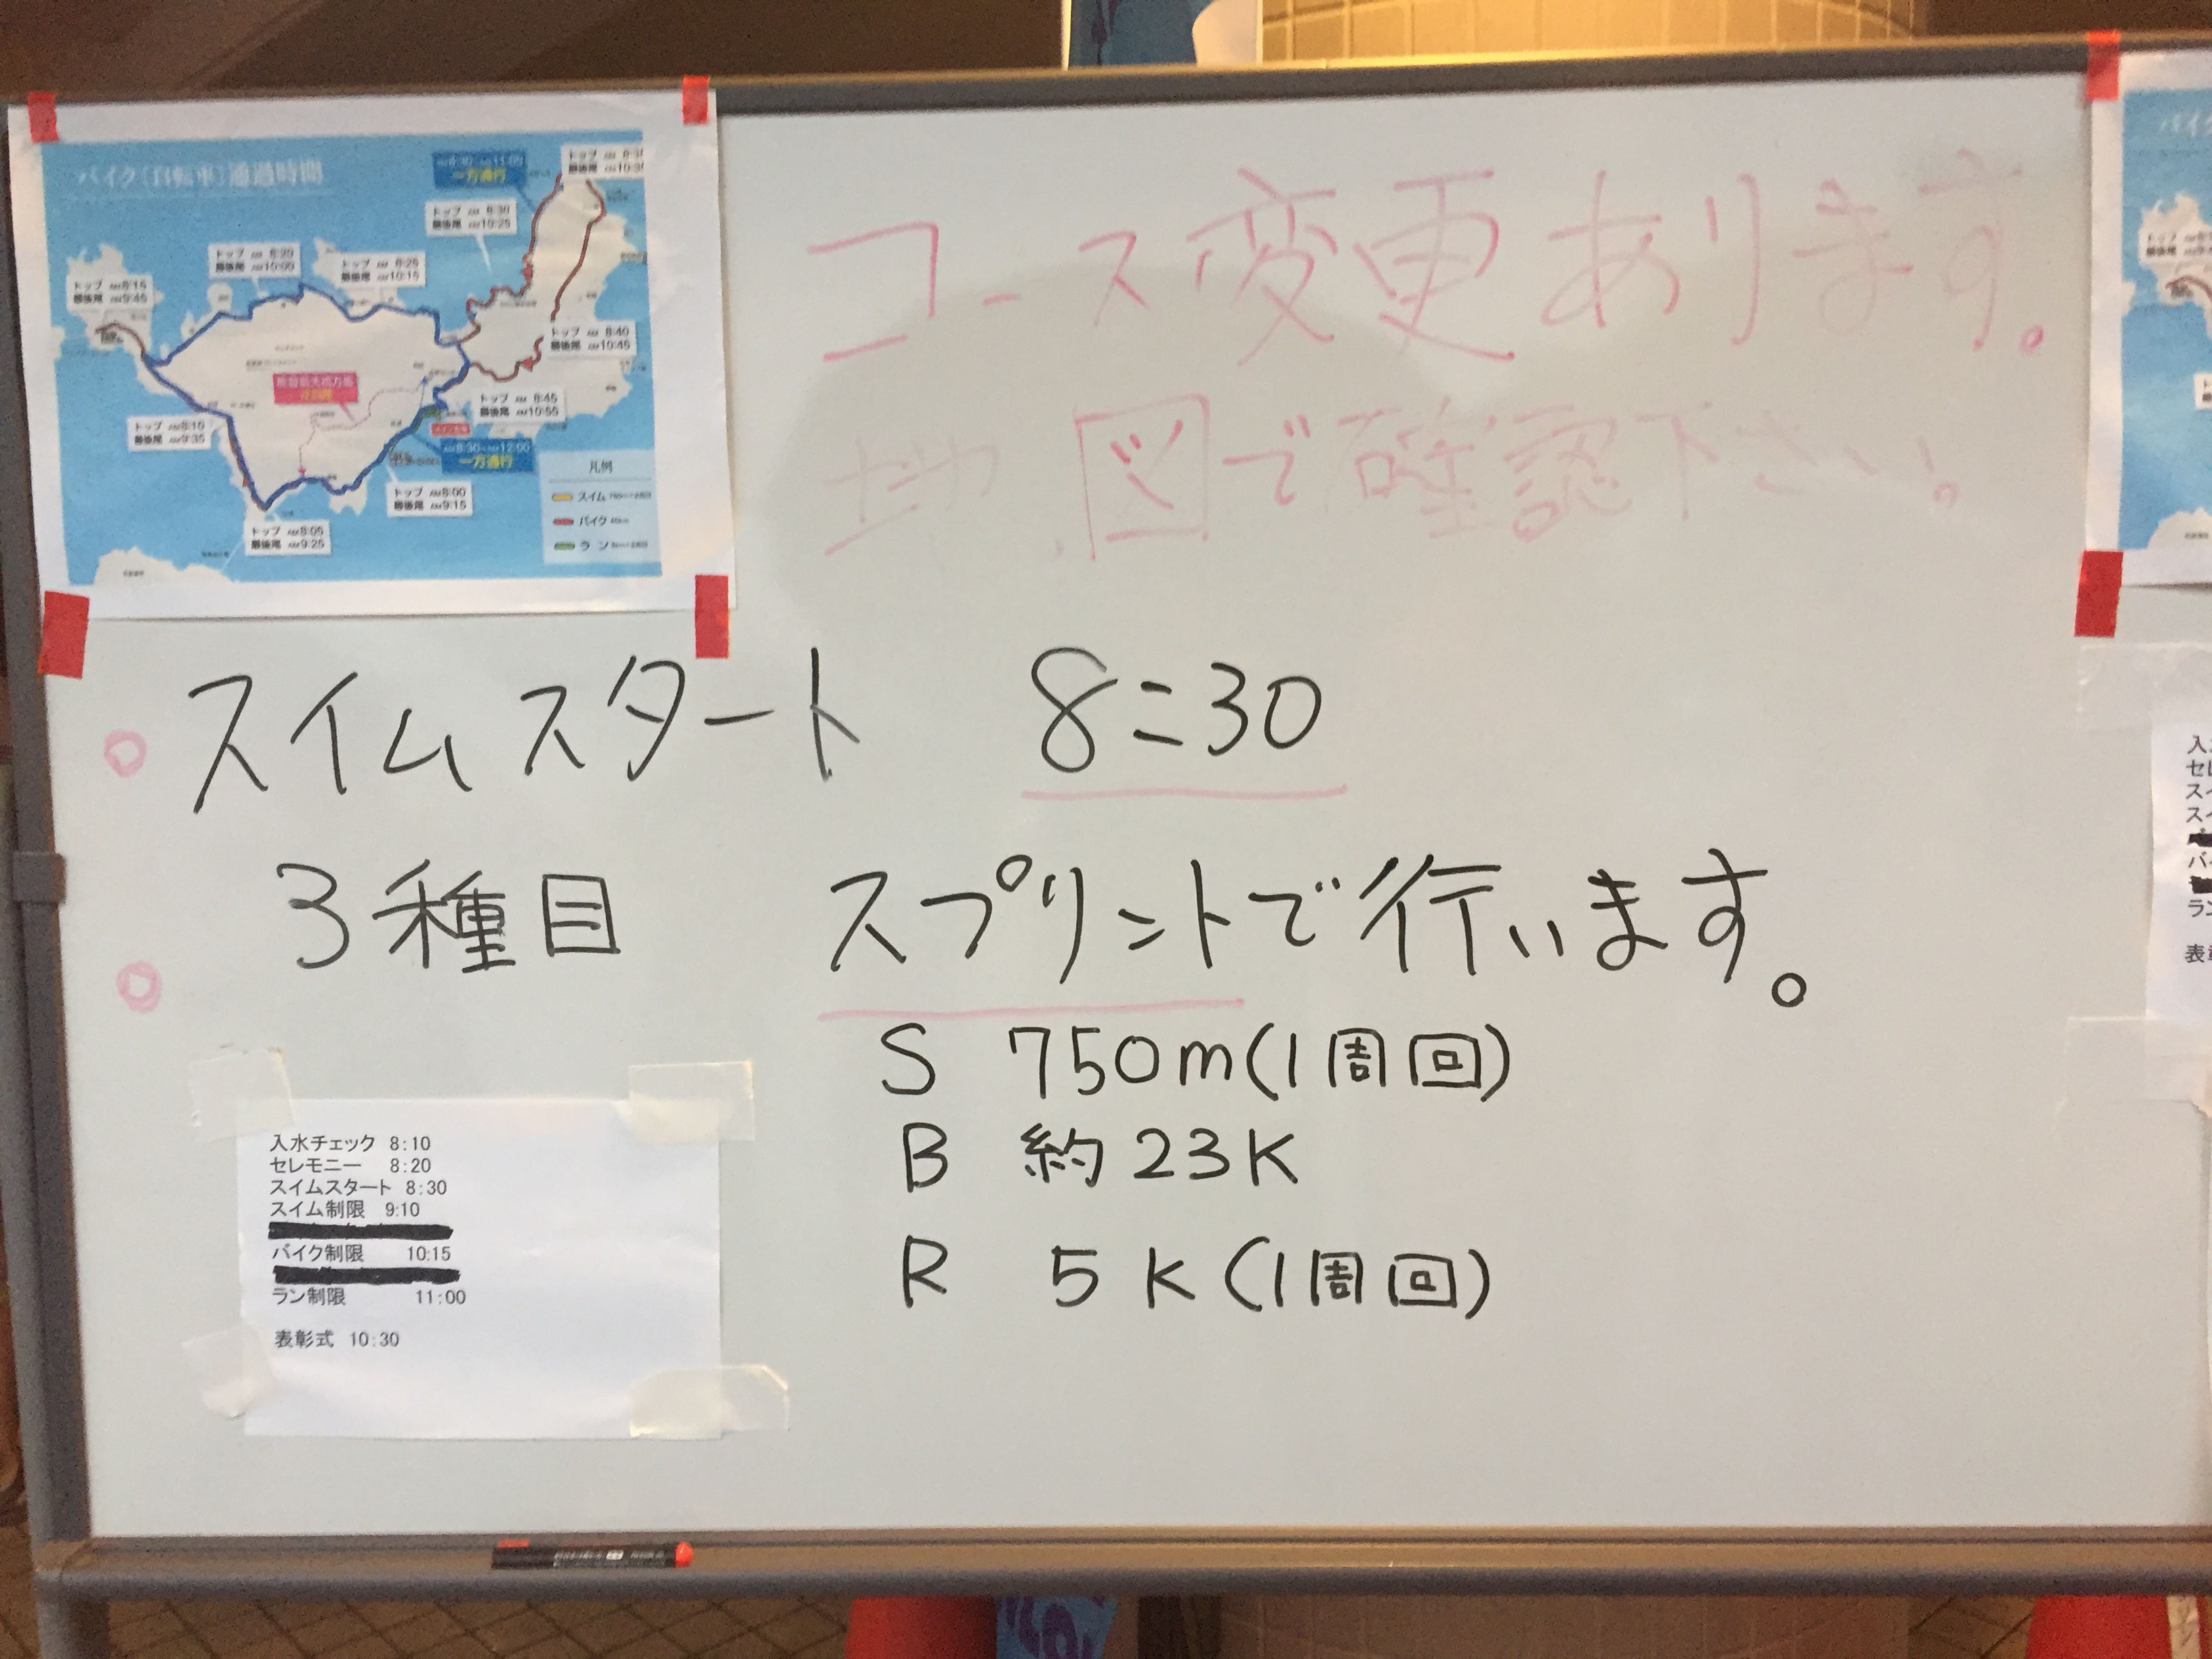 バイク〔自転車〕通過時間
一方通行
トップ AM 8:30
最後尾 AM10:25
トップ AM 8:20
最後尾 AM10:00
トップ AM 8:25
最後尾 AM10:15
トップ AM8:15
最後尾 AM9:45
トップ AM 8:40
最後尾 AM10:45
トップ AM 8:45
最後尾 AM10:55
トップ AM8:10
最後尾 AM9:35
AM8:30~AM12:00
一方通行
トップ AM8:00
最後尾 AM9:15
トップ AM8:05
最後尾 AM9:25
凡例
スイム
バイク
ラン
コース変更あります。
地図で確認下さい。
スイムスタート 8:30
3種目 スプリントで行います。
S 750m(1周回)
B 約23K
R 5K(1周回)
入水チェック 8:10
セレモニー 8:20
スイムスタート 8:30
スイム制限 9:10
バイク制限 10:15
ラン制限 11:00
表彰式 10:30